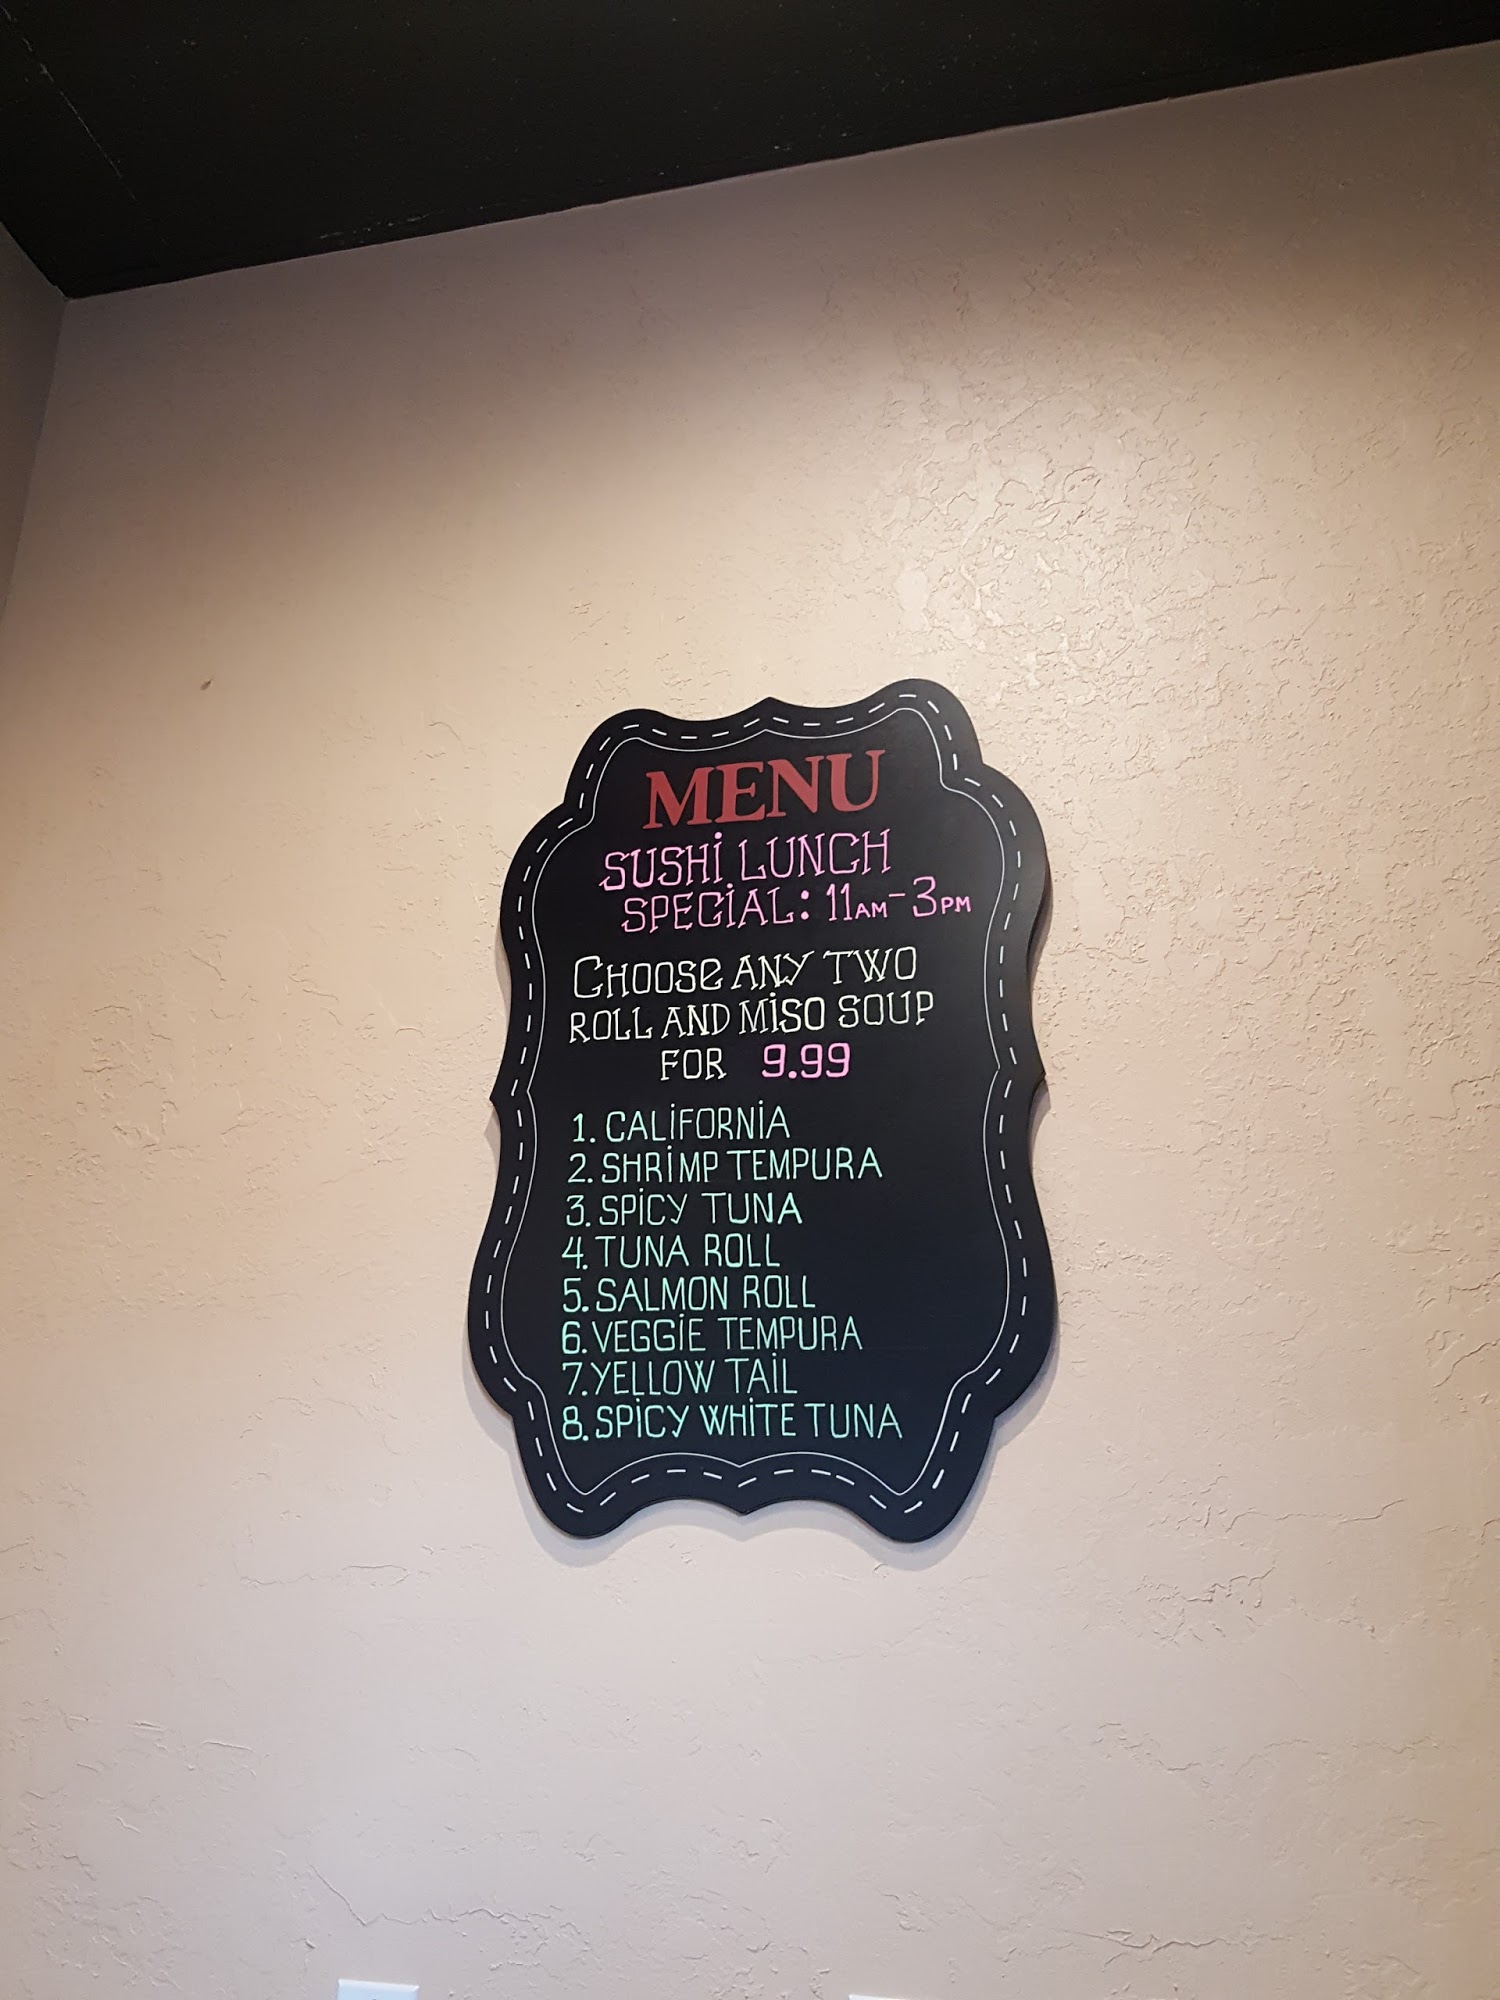 MENU
SUSHI LUNCH
SPECIAL: 11AM-3PM
CHOOSE ANY TWO
ROLL AND MISO SOUP
FOR 9.99
1. CALIFORNIA
2. SHRIMP TEMPURA
3. SPICY TUNA
4. TUNA ROLL
5. SALMON ROLL
6. VEGGIE TEMPURA
7. YELLOW TAIL
8. SPICY WHITE TUNA